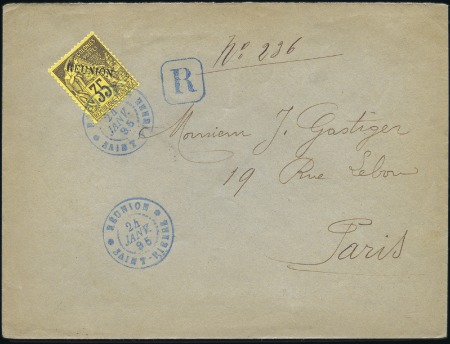 Nº 236
RÉUNION
35
R
RÉUNION
24
JANV.
95
SAINT-PIERRE
Monsieur J. Gastiger
19 Rue Lebon
Paris
RÉUNION
24
JANV.
95
SAINT-PIERRE